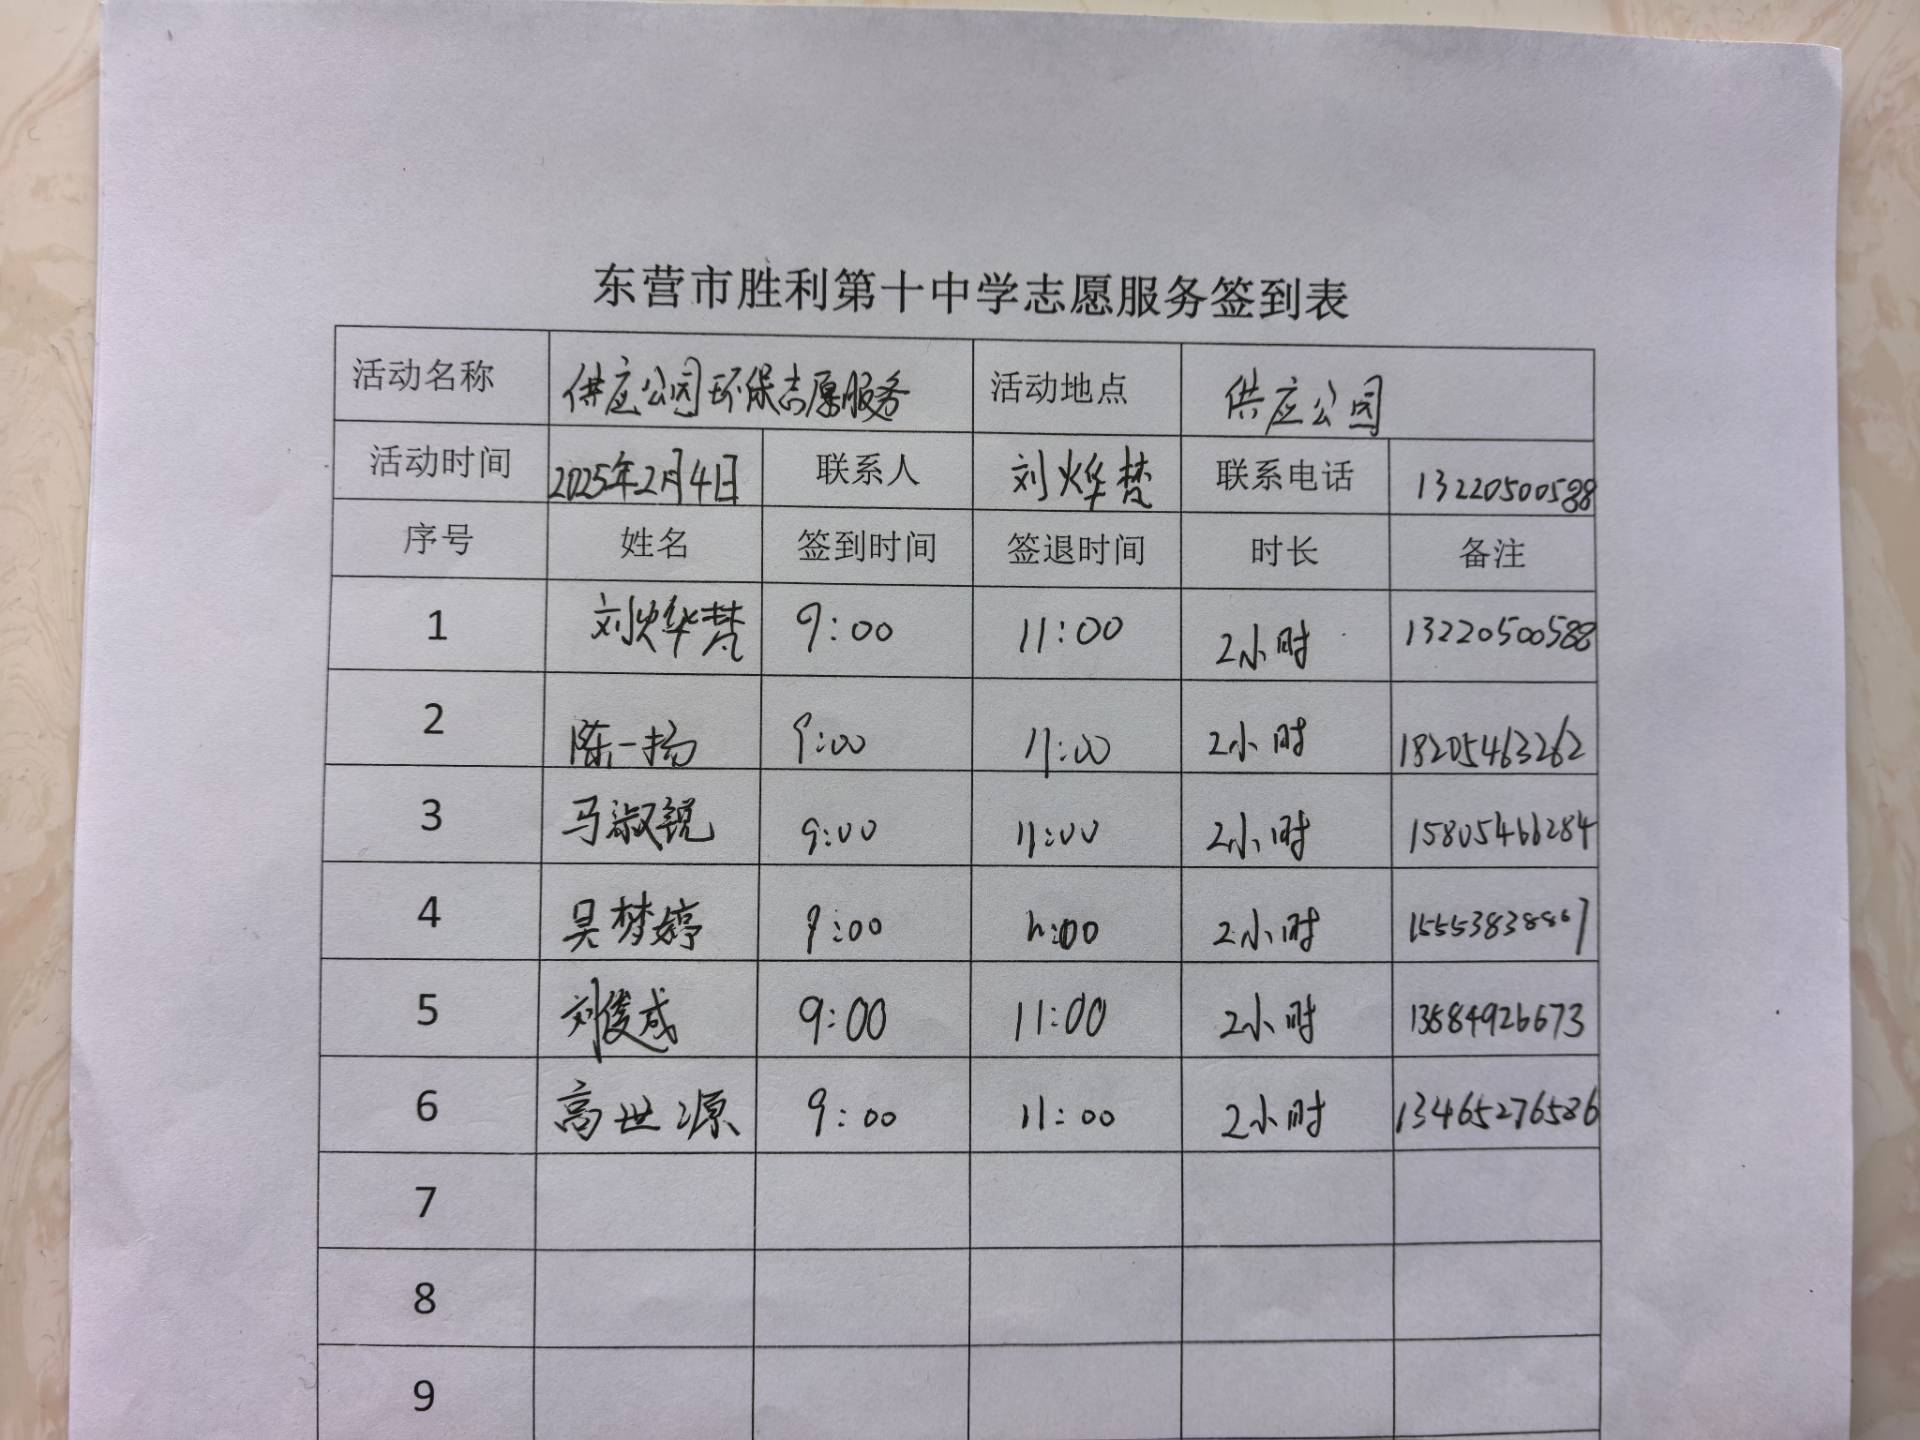 东营市胜利第十中学志愿服务签到表
活动名称 供应公园环保志愿服务 活动地点 供应公园
活动时间 2025年2月4日 联系人 刘烨梵 联系电话 13220500588
序号 姓名 签到时间 签退时间 时长 备注
1 刘烨梵 9:00 11:00 2小时 13220500588
2 陈一扬 9:00 11:00 2小时 18205463262
3 马淑锐 9:00 11:00 2小时 15805466284
4 吴梦婷 9:00 11:00 2小时 15553838867
5 刘俊成 9:00 11:00 2小时 13884926673
6 高世源 9:00 11:00 2小时 13465276586
7
8
9